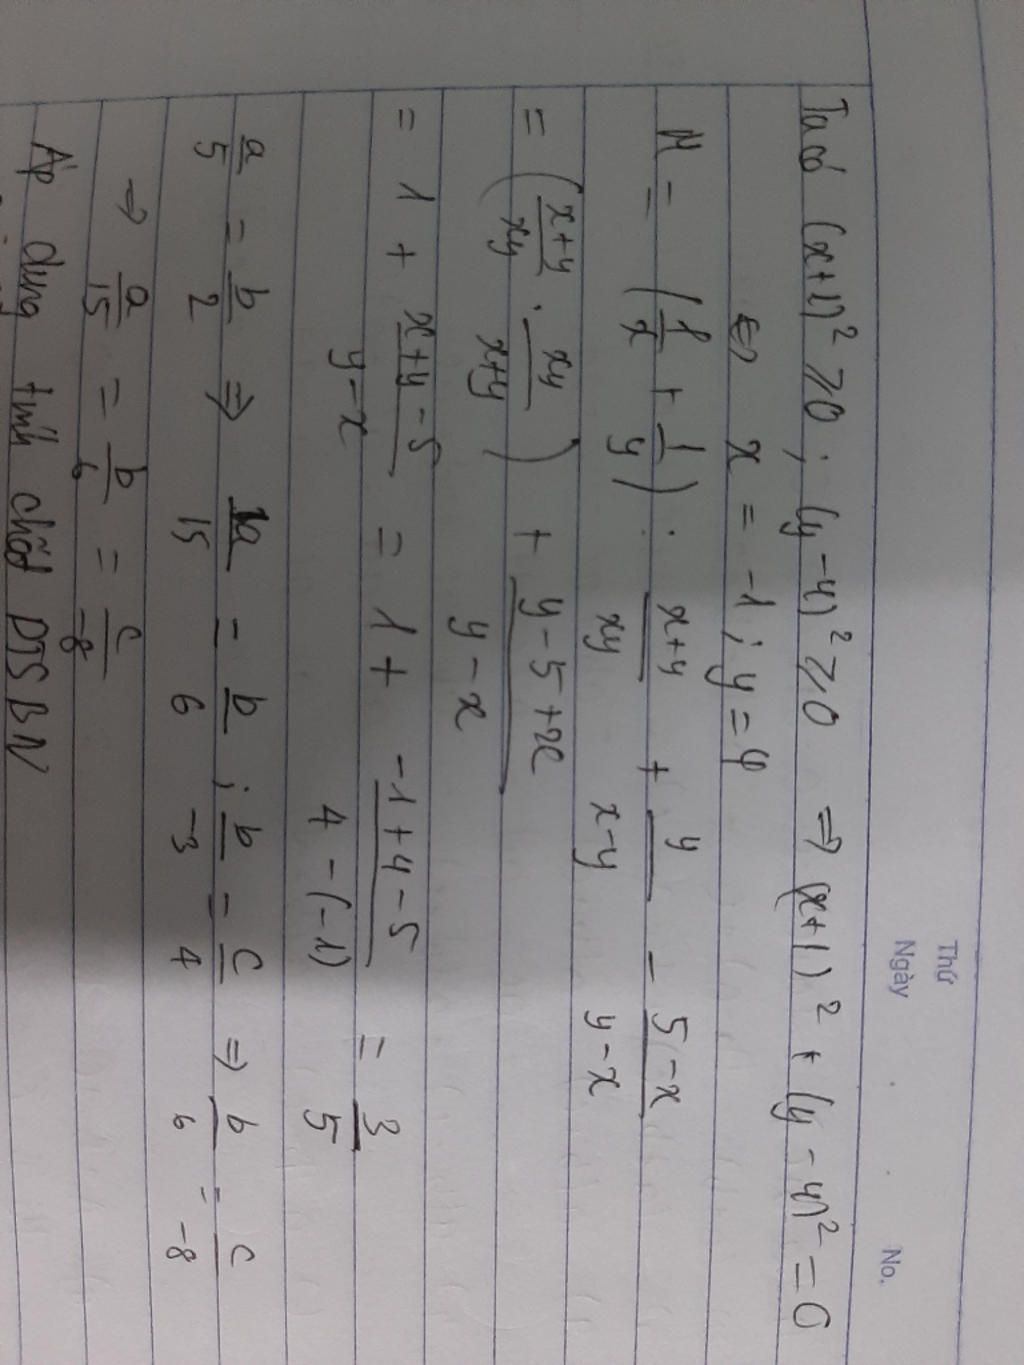 Thứ
Ngày No.
Ta có (x+1)² ≥ 0 ; (y-4)² ≥ 0 ⇒ (x+1)² + (y-4)² = 0
⇔ x = -1 ; y = 4
M = (1/x + 1/y) . x+y/xy + y/x-y - 5-x/y-x
= (x+y/xy . xy/x+y) + y-5+x/y-x
= 1 + x+y-5/y-x = 1 + -1+4-5/4-(-1) = 3/5
a/5 = b/2 ⇒ a/15 = b/6 ; b/-3 = c/4 ⇒ b/6 = c/-8
⇒ a/15 = b/6 = c/-8
Áp dụng tính chất DTSBN